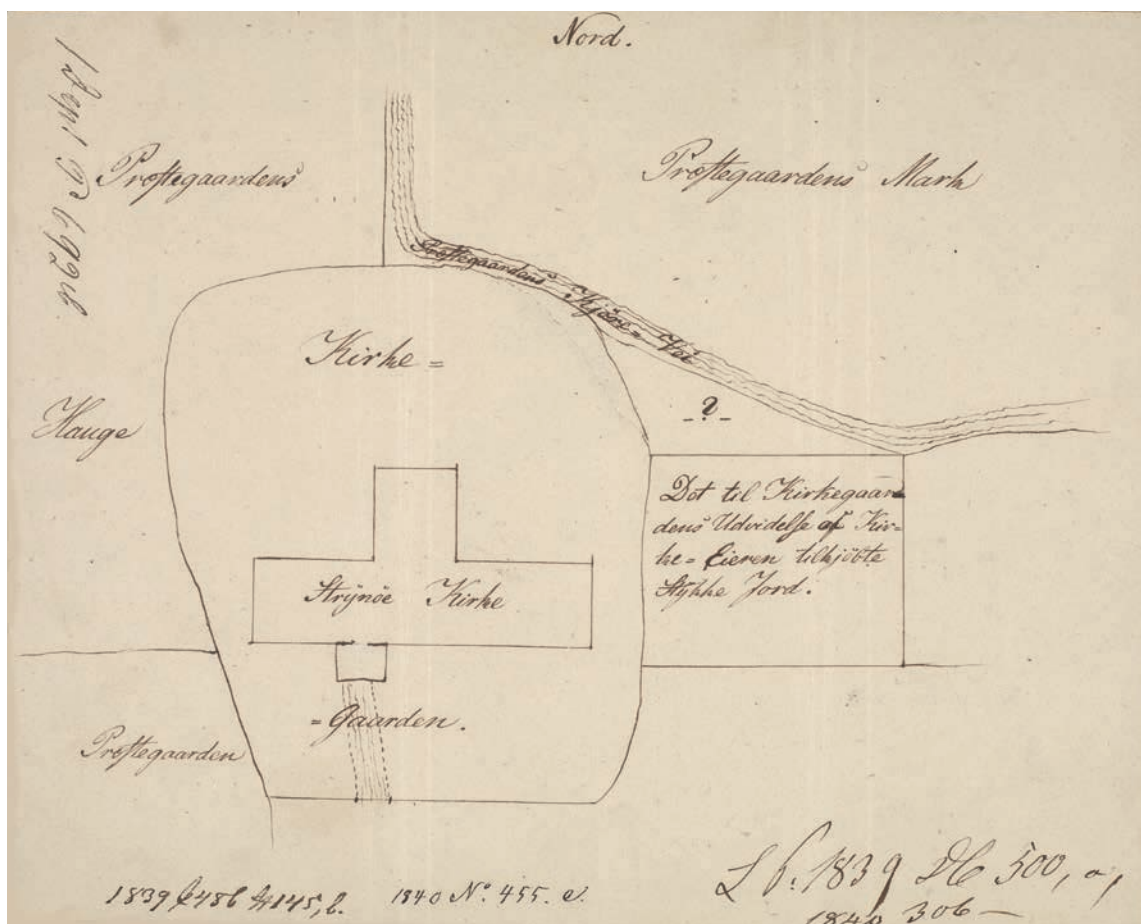 Nord.
Præstegaardens
Præstegaardens Mark
Præstegaardens Kjøre= Vei
Kirke =
Hauge
?
Det til Kirkegaar
dens Udvidelse af Kir-
ke= Eieren tilkjöbte
Stykke Jord.
Strÿnöe Kirke
=Gaarden.
Præstegaarden
1839 486 145, b.
1840 N° 455. e.
L b. 1839 500, a,
1840 306 —